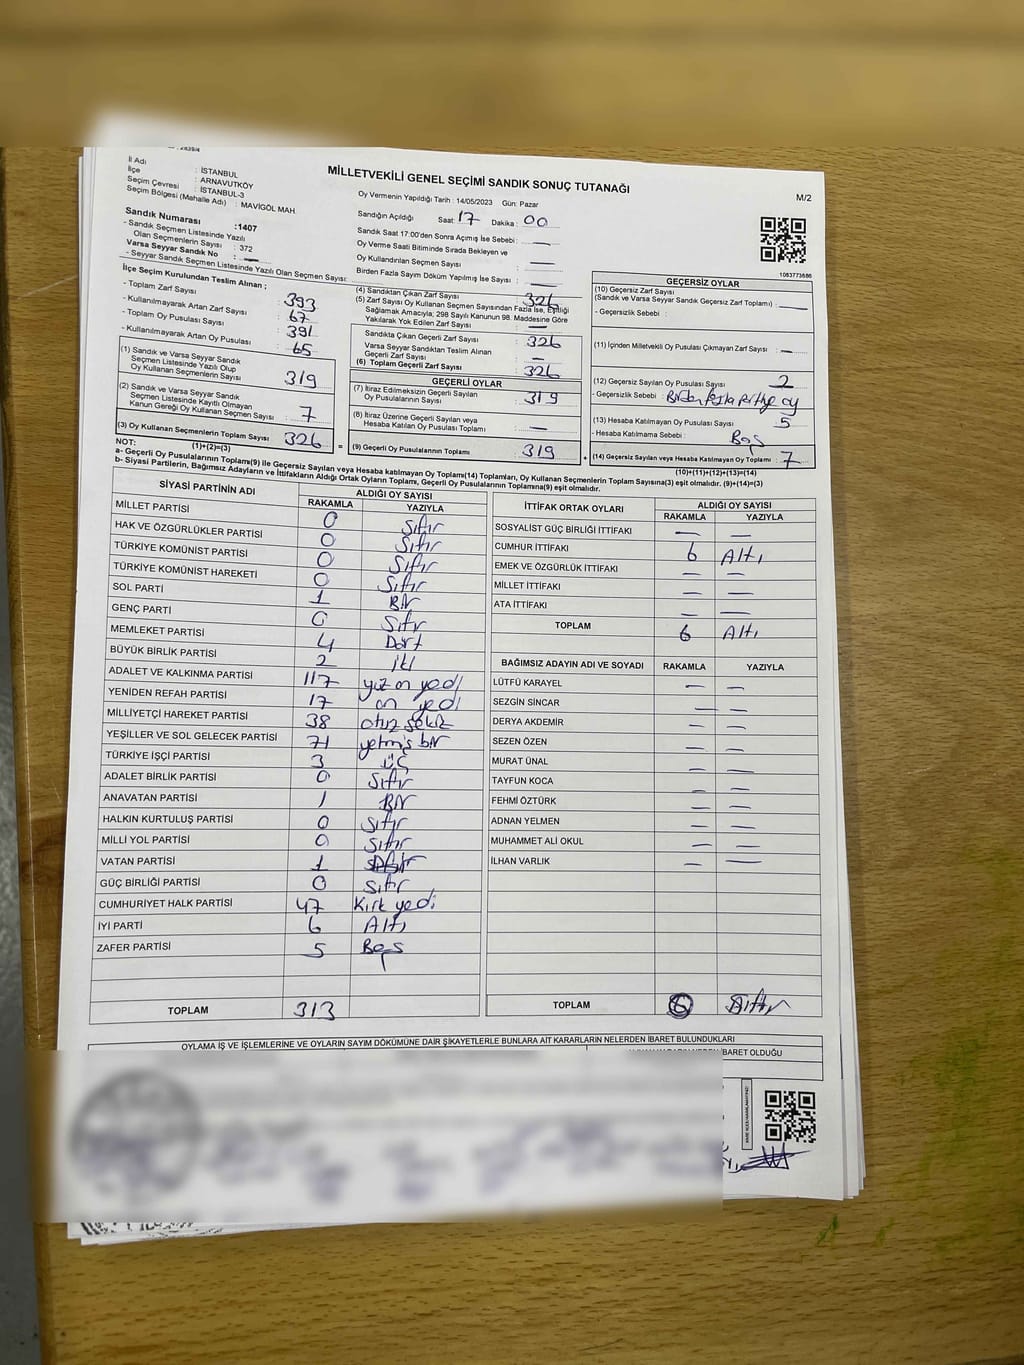 MİLLETVEKİLİ GENEL SEÇİMİ SANDIK SONUÇ TUTANAĞI
M/2
İl Adı : İSTANBUL
İlçe : ARNAVUTKÖY
Seçim Çevresi : İSTANBUL-3
Seçim Bölgesi (Mahalle Adı) : MAVİGÖL MAH.
Sandık Numarası :1407
- Sandık Seçmen Listesinde Yazılı
Olan Seçmenlerin Sayısı : 372
Varsa Seyyar Sandık No : —
- Seyyar Sandık Seçmen Listesinde Yazılı Olan Seçmen Sayısı:
Oy Vermenin Yapıldığı Tarih : 14/05/2023 Gün: Pazar
Sandığın Açıldığı Saat : 17 Dakika : 00
Sandık Saat 17:00'den Sonra Açmış İse Sebebi : —
Oy Verme Saati Bitiminde Sırada Bekleyen ve
Oy Kullandırılan Seçmen Sayısı : —
Birden Fazla Sayım Döküm Yapılmış İse Sayısı : —
1083773686
İlçe Seçim Kurulundan Teslim Alınan ;
- Toplam Zarf Sayısı : 393
- Kullanılmayarak Artan Zarf Sayısı : 67
- Toplam Oy Pusulası Sayısı : 391
- Kullanılmayarak Artan Oy Pusulası : 65
(1) Sandık ve Varsa Seyyar Sandık
Seçmen Listesinde Yazılı Olup
Oy Kullanan Seçmenlerin Sayısı : 319
(2) Sandık ve Varsa Seyyar Sandık
Seçmen Listesinde Kayıtlı Olmayan
Kanun Gereği Oy Kullanan Seçmen Sayısı : 7
(3) Oy Kullanan Seçmenlerin Toplam Sayısı : 326
(1)+(2)=(3)
(4) Sandıktan Çıkan Zarf Sayısı : 326
(5) Zarf Sayısı Oy Kullanan Seçmen Sayısından Fazla İse, Eşitliği
Sağlamak Amacıyla; 298 Sayılı Kanunun 98. Maddesine Göre
Yakılarak Yok Edilen Zarf Sayısı : —
Sandıkta Çıkan Geçerli Zarf Sayısı : 326
Varsa Seyyar Sandıktan Teslim Alınan
Geçerli Zarf Sayısı : —
(6) Toplam Geçerli Zarf Sayısı : 326
GEÇERLİ OYLAR
(7) İtiraz Edilmeksizin Geçerli Sayılan
Oy Pusulalarının Sayısı : 319
(8) İtiraz Üzerine Geçerli Sayılan veya
Hesaba Katılan Oy Pusulası Toplamı : —
= (9) Geçerli Oy Pusulalarının Toplamı : 319 +
GEÇERSİZ OYLAR
(10) Geçersiz Zarf Sayısı
(Sandık ve Varsa Seyyar Sandık Geçersiz Zarf Toplamı) : —
- Geçersizlik Sebebi :
(11) İçinden Milletvekili Oy Pusulası Çıkmayan Zarf Sayısı : —
(12) Geçersiz Sayılan Oy Pusulası Sayısı : 2
- Geçersizlik Sebebi : Birden fazla partiye oy
(13) Hesaba Katılmayan Oy Pusulası Sayısı : 5
- Hesaba Katılmama Sebebi : Boş
(14) Geçersiz Sayılan veya Hesaba Katılmayan Oy Toplamı : 7
(10)+(11)+(12)+(13)=(14)
NOT:
a- Geçerli Oy Pusulasının Toplamı(9) ile Geçersiz Sayılan veya Hesaba katılmayan Oy Toplam(14) Toplamları, Oy Kullanan Seçmenlerin Toplam Sayısına(3) eşit olmalıdır. (9)+(14)=(3)
b- Siyasi Partilerin, Bağımsız Adayların ve İttifakların Aldığı Ortak Oyların Toplamı, Geçerli Oy Pusulalarının Toplamına(9) eşit olmalıdır.
SİYASİ PARTİNİN ADI ALDIĞI OY SAYISI
RAKAMLA YAZIYLA
MİLLET PARTİSİ 0 Sıfır
HAK VE ÖZGÜRLÜKLER PARTİSİ 0 Sıfır
TÜRKİYE KOMÜNİST PARTİSİ 0 Sıfır
TÜRKİYE KOMÜNİST HAREKETİ 0 Sıfır
SOL PARTİ 1 Bir
GENÇ PARTİ 0 Sıfır
MEMLEKET PARTİSİ 4 Dört
BÜYÜK BİRLİK PARTİSİ 2 iki
ADALET VE KALKINMA PARTİSİ 117 yüz on yedi
YENİDEN REFAH PARTİSİ 17 on yedi
MİLLİYETÇİ HAREKET PARTİSİ 38 otuz sekiz
YEŞİLLER VE SOL GELECEK PARTİSİ 71 yetmiş bir
TÜRKİYE İŞÇİ PARTİSİ 3 üç
ADALET BİRLİK PARTİSİ 0 Sıfır
ANAVATAN PARTİSİ 1 Bir
HALKIN KURTULUŞ PARTİSİ 0 Sıfır
MİLLİ YOL PARTİSİ 0 Sıfır
VATAN PARTİSİ 1
GÜÇ BİRLİĞİ PARTİSİ 0 Sıfır
CUMHURİYET HALK PARTİSİ 47 Kırk yedi
İYİ PARTİ 6 Altı
ZAFER PARTİSİ 5 Beş
TOPLAM 313
İTTİFAK ORTAK OYLARI ALDIĞI OY SAYISI
RAKAMLA YAZIYLA
SOSYALİST GÜÇ BİRLİĞİ İTTİFAKI — —
CUMHUR İTTİFAKI 6 Altı
EMEK VE ÖZGÜRLÜK İTTİFAKI — —
MİLLET İTTİFAKI — —
ATA İTTİFAKI — —
TOPLAM 6 Altı
BAĞIMSIZ ADAYIN ADI VE SOYADI RAKAMLA YAZIYLA
LÜTFÜ KARAYEL — —
SEZGİN SINCAR — —
DERYA AKDEMİR — —
SEZEN ÖZEN — —
MURAT ÜNAL — —
TAYFUN KOCA — —
FEHMİ ÖZTÜRK — —
ADNAN YELMEN — —
MUHAMMET ALİ OKUL — —
İLHAN VARLIK — —
TOPLAM
OYLAMA İŞ VE İŞLEMLERİNE VE OYLARIN SAYIM DÖKÜMÜNE DAİR ŞİKAYETLERLE BUNLARA AİT KARARLARIN NELERDEN İBARET BULUNDUKLARI
BARET OLDUĞU